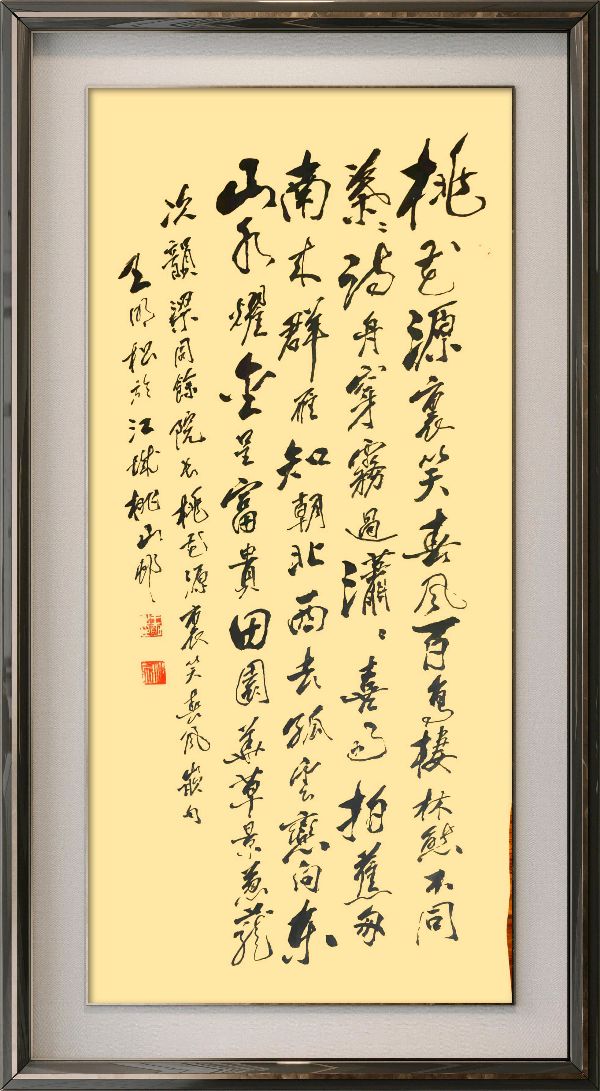 桃花源裏笑春風百鳥棲林態不同
葉〻詩舟穿霧過瀟〻喜雨拍蕉匆
南來群雁知朝北西去孤雲戀向東
山水耀金呈富貴田園美草景蔥蘢
次韻梁同餘院長桃花源裏笑春風嵌句
王明松於江城桃山邨